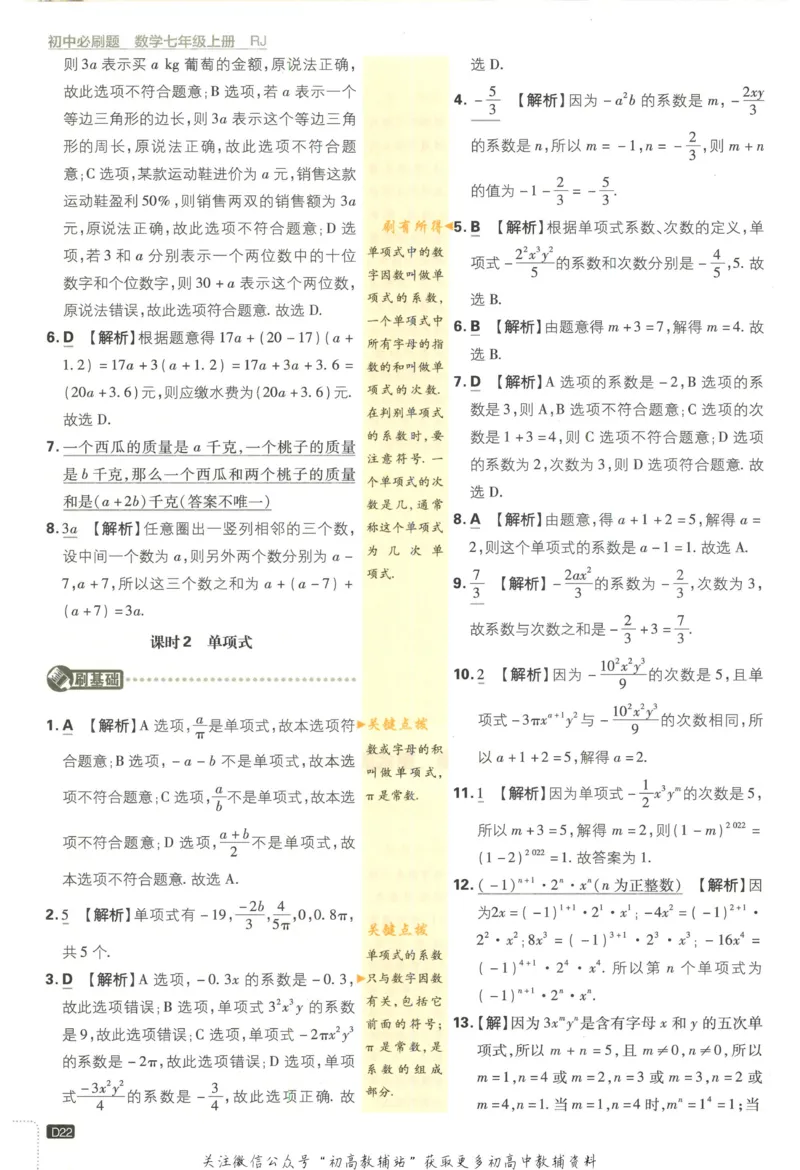 初中必刷题 数学七年级上册 RJ
则3a表示买a kg葡萄的金额,原说法正确,
故此选项不符合题意;B选项,若a表示一个
等边三角形的边长,则3a表示这个等边三角
形的周长,原说法正确,故此选项不符合题
意;C选项,某款运动鞋进价为a元,销售这款
运动鞋盈利50%,则销售两双的销售额为3a
元,原说法正确,故此选项不符合题意;D选
项,若3和a分别表示一个两位数中的十位
数字和个位数字,则30+a表示这个两位数,
原说法错误,故此选项符合题意.故选D.
6.D 【解析】根据题意得17a+(20-17)(a+
1.2)=17a+3(a+1.2)=17a+3a+3.6=
(20a+3.6)元,则应缴水费为(20a+3.6)元.
故选D.
7.一个西瓜的质量是a千克,一个桃子的质量
是b千克,那么一个西瓜和两个桃子的质量
和是(a+2b)千克(答案不唯一)
8.3a 【解析】任意圈出一竖列相邻的三个数,
设中间一个数为a,则另外两个数分别为a-
7,a+7,所以这三个数之和为a+(a-7)+
(a+7)=3a.
课时2 单项式
刷基础
1.A 【解析】A选项,a/π是单项式,故本选项符
合题意;B选项,-a-b不是单项式,故本选
项不符合题意;C选项,a/b不是单项式,故本选
项不符合题意;D选项,(a+b)/2不是单项式,故
本选项不符合题意.故选A.
2.5 【解析】单项式有-19,-2b/3,4/5π,0,0.8π,
共5个.
3.D 【解析】A选项,-0.3x的系数是-0.3,
故此选项错误;B选项,单项式3²x³y的系数
是9,故此选项错误;C选项,单项式-2πx²y³
的系数是-2π,故此选项错误;D选项,单项
式-3x²y²/4的系数是-3/4,故此选项正确.故
刷有所得
单项式中的数
字因数叫做单
项式的系数,
一个单项式中
所有字母的指
数的和叫做单
项式的次数.
在判别单项式
的系数时,要
注意符号.一
个单项式的次
数是几,通常
称这个单项式
为几次单
项式.
关键点拨
数或字母的积
叫做单项式,
π是常数.
关键点拨
单项式的系数
只与数字因数
有关,包括它
前面的符号;
π是常数,是
系数的组成
部分.
选D.
4.-5/3 【解析】因为-a²b的系数是m,-2xy/3
的系数是n,所以m=-1,n=-2/3,则m+n
的值为-1-2/3=-5/3.
5.B 【解析】根据单项式系数、次数的定义,单
项式-2²x³y²/5的系数和次数分别是-4/5,5.故
选B.
6.B 【解析】由题意得m+3=7,解得m=4.故
选B.
7.D 【解析】A选项的系数是-2,B选项的系
数是3,则A,B选项不符合题意;C选项的次
数是1+3=4,则C选项不符合题意;D选项
的系数为2,次数为3,则D选项符合题意.故
选D.
8.A 【解析】由题意,得a+1+2=5,解得a=
2,则这个单项式的系数是a-1=1.故选A.
9.7/3 【解析】-2ax²/3的系数为-2/3,次数为3,
故系数与次数之和是-2/3+3=7/3.
10.2 【解析】因为-10²x²y³/9的次数是5,且单
项式-3πxᵃ⁺¹y²与-10²x²y³/9的次数相同,所
以a+1+2=5,解得a=2.
11.1 【解析】因为单项式-1/2x³yᵐ的次数是5,
所以m+3=5,解得m=2,则(1-m)²⁰²²=
(1-2)²⁰²²=1.故答案为1.
12.(-1)ⁿ⁺¹·2ⁿ·xⁿ(n为正整数) 【解析】因
为2x=(-1)¹⁺¹·2¹·x¹;-4x²=(-1)²⁺¹·
2²·x²;8x³=(-1)³⁺¹·2³·x³;-16x⁴=
(-1)⁴⁺¹·2⁴·x⁴.所以第n个单项式为
(-1)ⁿ⁺¹·2ⁿ·xⁿ.
13.【解】因为3xᵐyⁿ是含有字母x和y的五次单
项式,所以m+n=5,且m≠0,n≠0,所以
m=1,n=4或m=2,n=3或m=3,n=2或
m=4,n=1.当m=1,n=4时,mⁿ=1⁴=1;当
D22
关注微信公众号“初高教辅站”获取更多初高中教辅资料